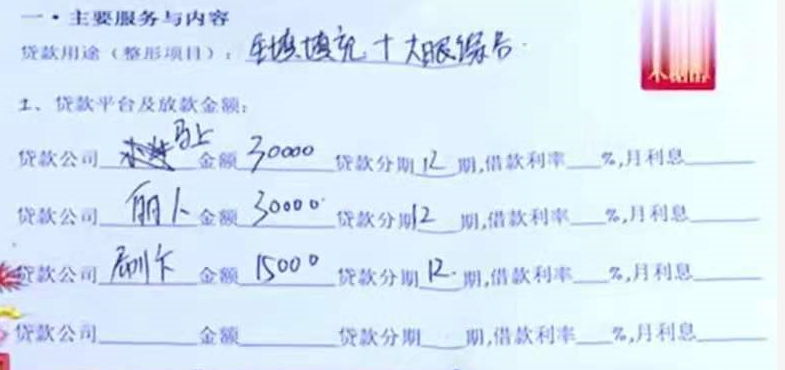 一·主要服务与内容
贷款用途（整形项目）：全填填充十大眼综合.
1、贷款平台及放款金额：
贷款公司 马上 金额 30000 贷款分期 12 期,借款利率___%,月利息______
贷款公司 金额 30000 贷款分期 12 期,借款利率___%,月利息______
贷款公司 刷卡 金额 15000 贷款分期 12. 期,借款利率___%,月利息______
贷款公司______金额______贷款分期___期,借款利率___%,月利息______